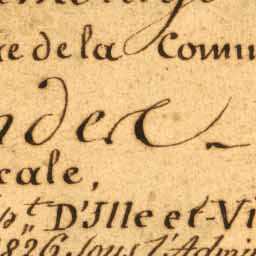 re de la Comm
ndex
cale,
pt D'Ille et-Vi
1826 Sous l'Admin